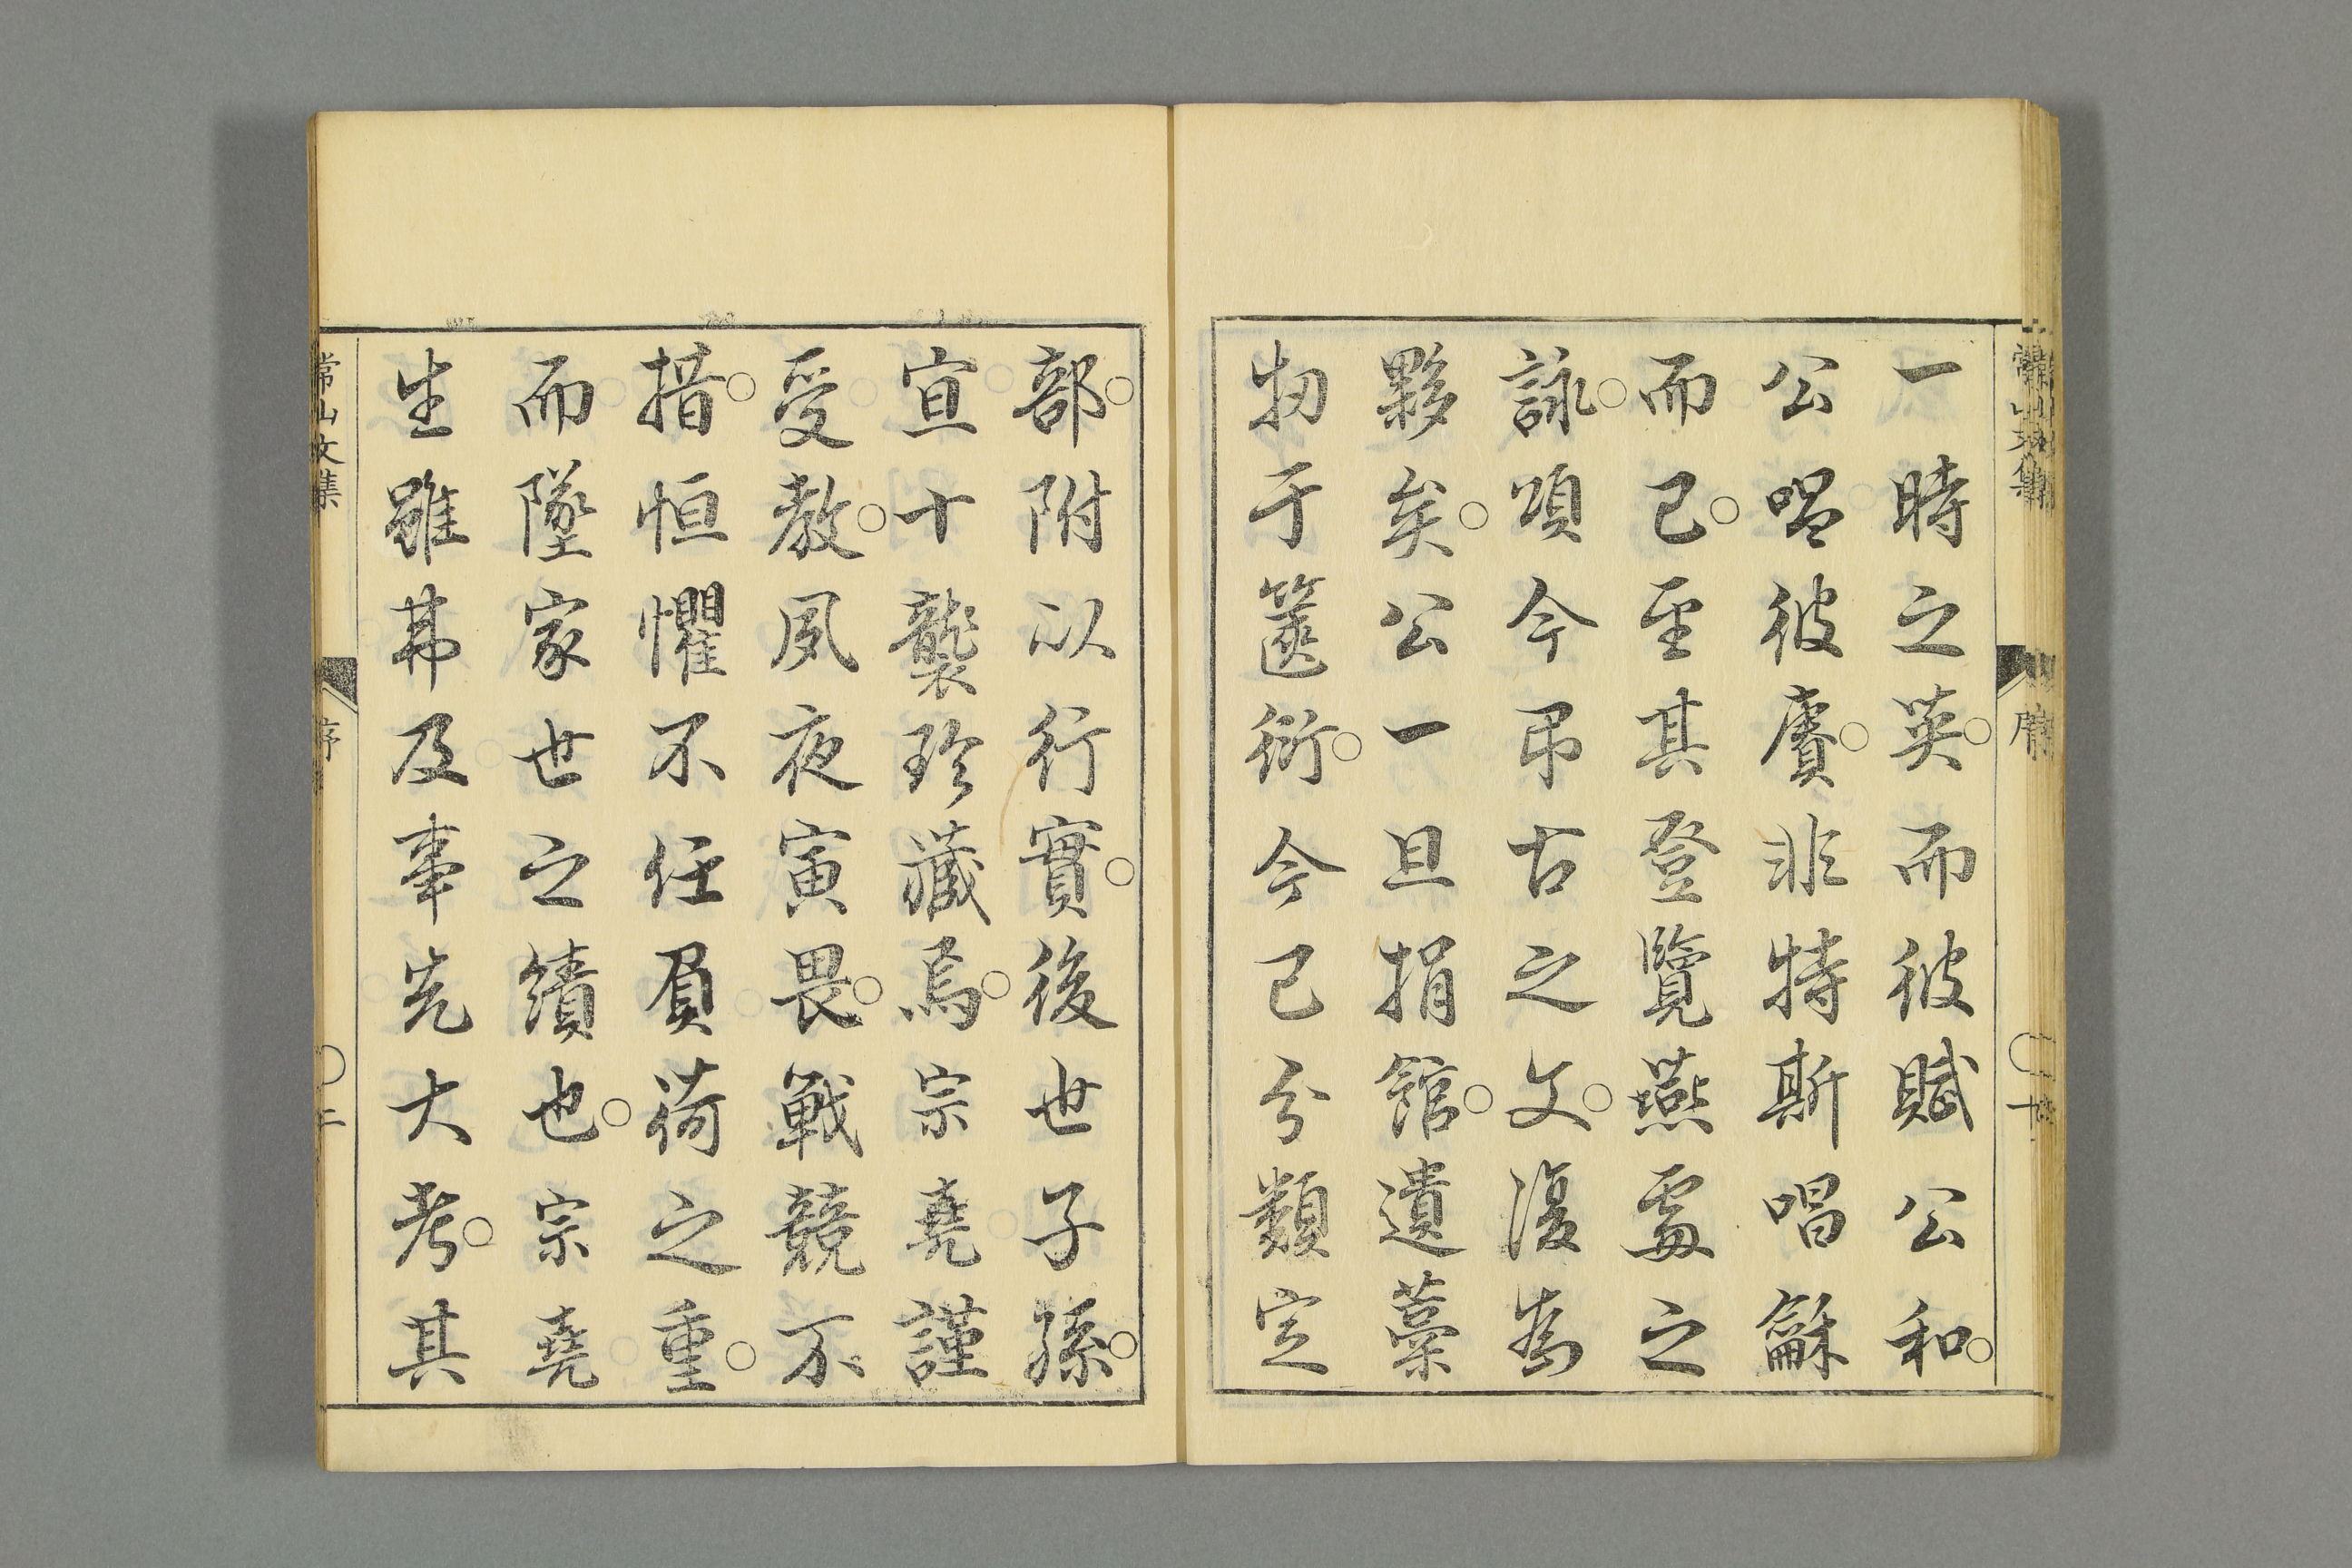 一時之英。而彼賦公和。
公唱彼賡。非特斯唱龢
而已。至其登覽燕處之
詠。頌今弔古之文。復為
夥矣。公一旦捐館。遺藁
物于篋衍。今已分類定
部。附以行實。後世子孫。
宣十襲珍藏焉。宗堯謹
受教。夙夜寅畏。戰競不
措。恒懼不任負荷之重。
而墜家世之績也。宗堯
生雖弗及事先大考。其
常山文集
序